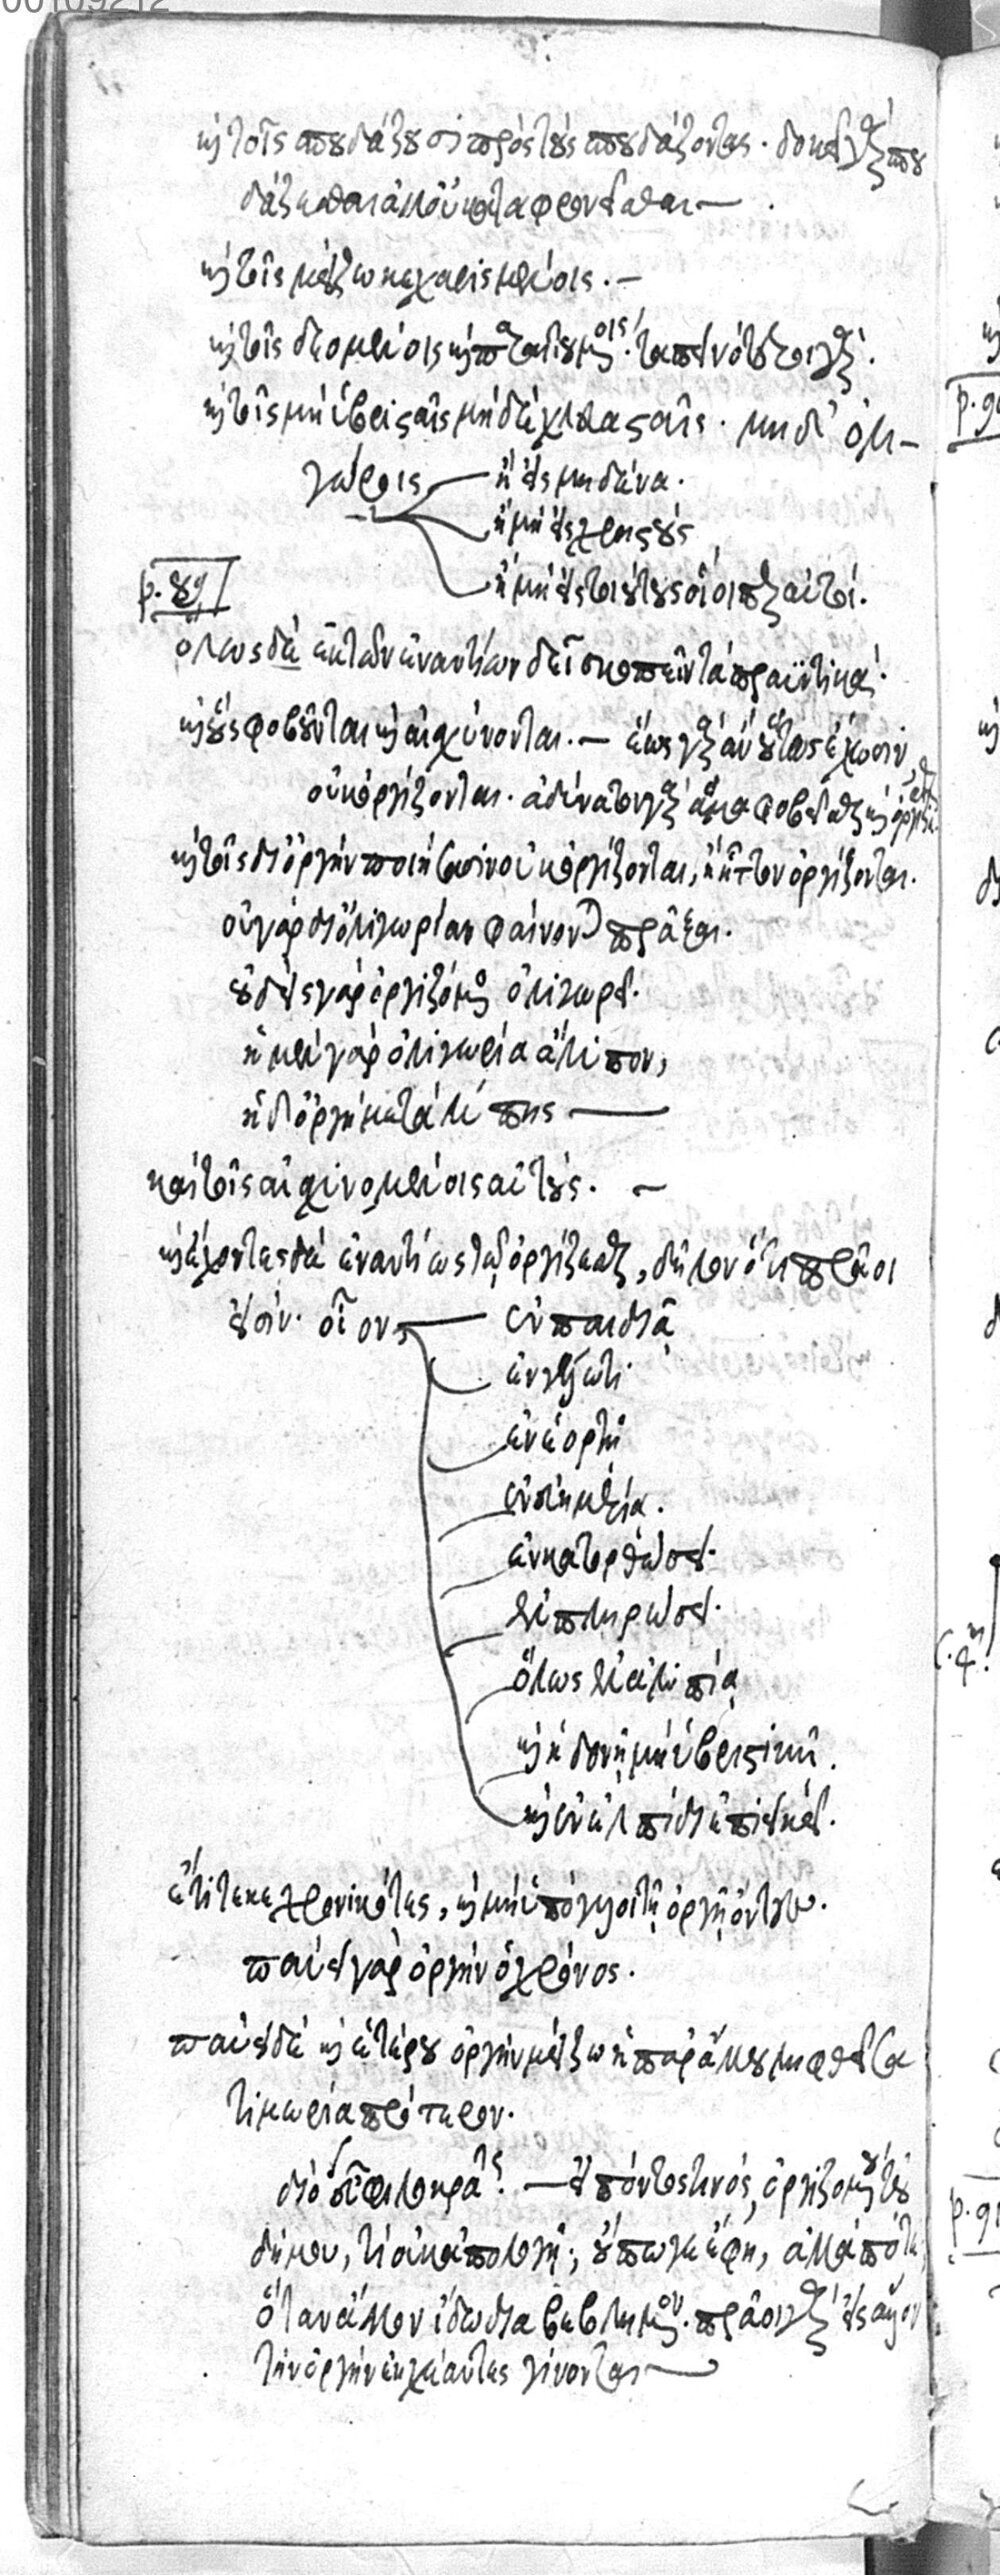 00109212
καὶ τοῖς σπουδάζουσι πρὸς τοὺς σπουδάζοντας. δοκεῖ γὰρ σπου
δάζεσθαι ἀλλ' οὐ καταφρονεῖσθαι —
καὶ τοῖς μείζω κεχαρισμένοις. —
καὶ τοῖς δεομένοις καὶ παραιτουμένοις. ταπεινότεροι γάρ.
καὶ τοῖς μὴ ὑβρισταῖς μηδὲ χλευασταῖς. μηδ' ὀλι-
γώροις — ἢ εἰς μηδένα.
ἢ μὴ εἰς χρηστούς
ἢ μὴ εἰς τοιούτους οἷοί περ αὐτοί.
p. 89
ὅλως δὲ ἐκ τῶν ἐναντίων δεῖ σκοπεῖν τὰ πραϋντικά.
καὶ οὓς φοβοῦνται καὶ αἰσχύνονται. — ἕως γὰρ ἂν οὕτως ἔχωσιν,
οὐκ ὀργίζονται. ἀδύνατον γὰρ ἅμα φοβεῖσθαι καὶ ὀργίζεσθαι
καὶ τοῖς δι' ὀργὴν ποιήσασιν οὐκ ὀργίζονται, ἢ ἧττον ὀργίζονται.
οὐ γὰρ δι' ὀλιγωρίαν φαίνονται πρᾶξαι.
οὐδεὶς γὰρ ὀργιζόμενος ὀλιγωρεῖ.
ἡ μὲν γὰρ ὀλιγωρία ἄλυπον,
ἡ δ' ὀργὴ μετὰ λύπης —
καὶ τοῖς αἰσχυνομένοις αὐτούς. —
καὶ ἔχοντες δὲ ἐναντίως τῷ ὀργίζεσθαι, δῆλον ὅτι πρᾶοι
εἰσίν. οἷον — ἐν παιδιᾷ
ἐν γέλωτι
ἐν ἑορτῇ
ἐν εὐημερίᾳ.
ἐν κατορθώσει.
ἐν πληρώσει.
ὅλως ἐν ἀλυπίᾳ
καὶ ἡδονῇ μὴ ὑβριστικῇ.
καὶ ἐν ἐλπίδι ἐπιεικεῖ.
ἔτι τε κεχρονικότες, καὶ μὴ ὑπόγυιοι τῇ ὀργῇ ὄντες.
παύει γὰρ ὀργὴν ὁ χρόνος.
παύει δὲ καὶ ἑτέρου ὀργὴν μείζω ἡ παρ' ἄλλου ληφθεῖσα
τιμωρία πρότερον.
διὸ εὖ Φιλοκράτης. — εἰπόντος τινός, ὀργιζομένου τοῦ
δήμου, τί οὐκ ἀπολογῇ; οὔπω γε ἔφη, ἀλλὰ πότε;
ὅταν ἄλλον ἴδω διαβεβλημένον. πρᾶοι γὰρ εἰς ἄλλον
τὴν ὀργὴν ἐκχέαντες γίνονται —